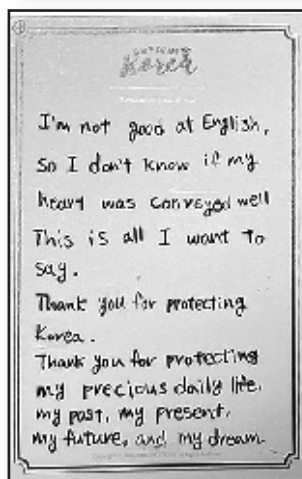 Korea
I'm not good at English,
so I don't know if my
heart was conveyed well
This is all I want to
say.
Thank you for protecting
Korea.
Thank you for protecting
my precious daily life,
my past, my present,
my future, and my dream